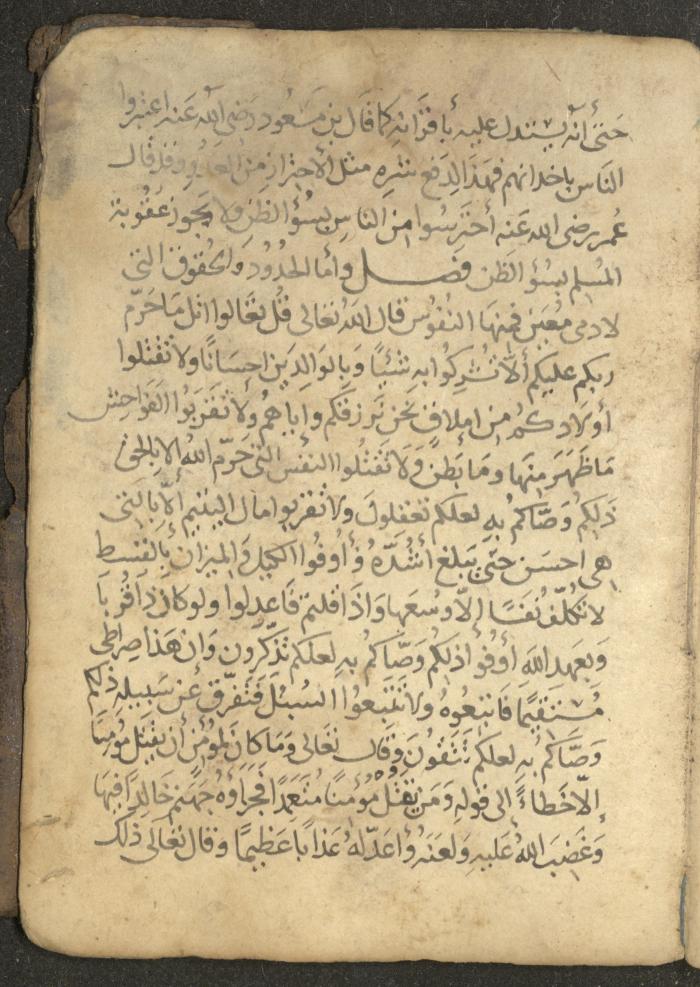 حَتىَّ أنّه يستدل عليه بأقرانهِ كما قال بن مسعود رَضى الله عَنه اعتبروا
الناس باخدانهم فهَذَا لدفع شره مثل الاحتراز من العَدو وقد قال
عُمر رضى الله عَنه أحترسُوا من الناس بسُؤ الظن ولا يجوز عقُوبة
المسلم بسُؤ الظن فصل وأما الحدُود وَالحقوق التى
لادمى معين فمنهَا النفُوس قال الله تعالى قُل تعَالوا اتل مَا حَرّم
ربكم عليكم ألاَّ تُشركُوا به شيئًا وَبالوَالدَين احسَانًا ولا تقتلوا
أولادكم من املاقٍ نحن نرزقكم واياهم ولا تقرَبُوا الفَوَاحِش
مَا ظهَرَ منهَا ومَا بَطن وَلا تقتُلُوا النفسَ التى حَرّم الله الا بالحق
ذَلِكم وَصّاكم بهِ لعلكم تعقلونَ ولا تقربوا مال اليتيم ألاّ بالتى
هى احسَن حتى يَبلغ أشُدّهُ وَأوفُوا الكيل وَالميزان بالقسط
لا نكلّف نفسًا إلاّ وسعَها وَاذَا قلتم فاعدلوا ولو كان ذا قربا
وَبعَهد الله أوفُوا ذلكم وَصّاكم بهِ لعلكم تذكّرون وَان هَذا صِراطى
مُستقيمًا فَاتبعُوهُ ولا تتبعُوا السُبُل فَتفرّق عَن سَبيلهِ ذلكم
وَصّاكم بهِ لعلكم تتقونَ وَقال تعَالى وَمَا كانَ لمؤمن أن يقتل مؤمنًا
إلاّ خَطاءً إلى قولهِ وَمَن يقتُل مؤمنًا متعَمدًا فجزاؤهُ جَهَنم خَالدًا فيهَا
وَغَضبَ اللهُ عَليهِ وَلعَنهُ وأعَدّ لهُ عَذابًا عَظيمًا وقال تعَالى ذلك